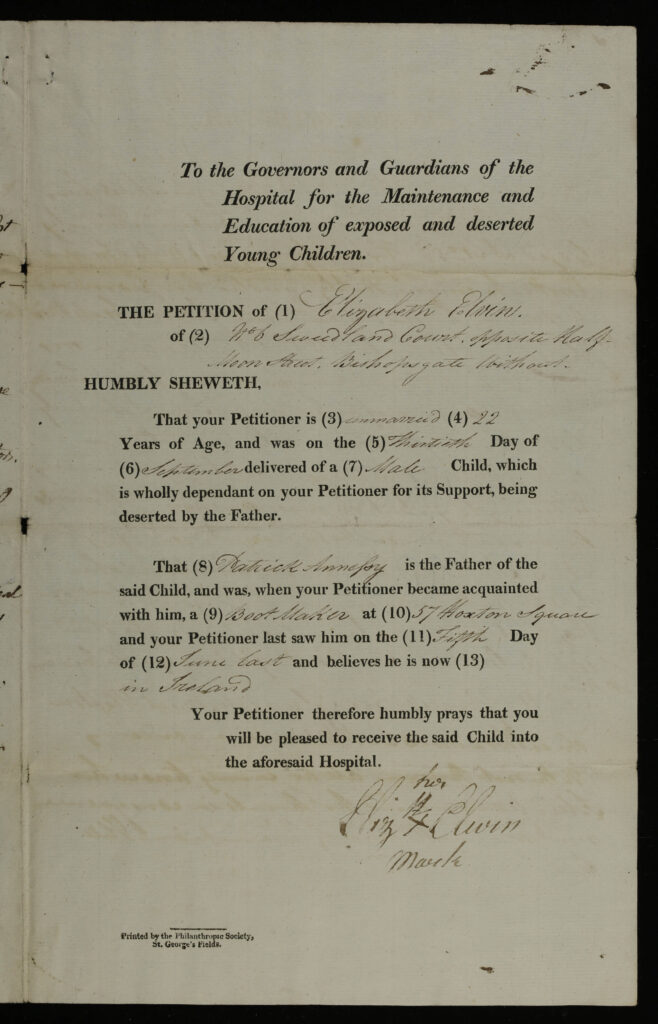 To the Governors and Guardians of the
Hospital for the Maintenance and
Education of exposed and deserted
Young Children.
THE PETITION of (1) Elizabeth Elvin.
of (2) No 6 Court. opposite Half-
Moon Street, Bishopsgate Without.
HUMBLY SHEWETH,
That your Petitioner is (3) unmarried (4) 22
Years of Age, and was on the (5) Thirtieth Day of
(6) September delivered of a (7) Male Child, which
is wholly dependant on your Petitioner for its Support, being
deserted by the Father.
That (8) Patrick is the Father of the
said Child, and was, when your Petitioner became acquainted
with him, a (9) Boot Maker at (10) 57 Hoxton Square
and your Petitioner last saw him on the (11) Fifth Day
of (12) June last and believes he is now (13)
in Ireland
Your Petitioner therefore humbly prays that you
will be pleased to receive the said Child into
the aforesaid Hospital.
her
Elizth X Elvin
Mark
Printed by the Philanthropic Society,
St. George's Fields.